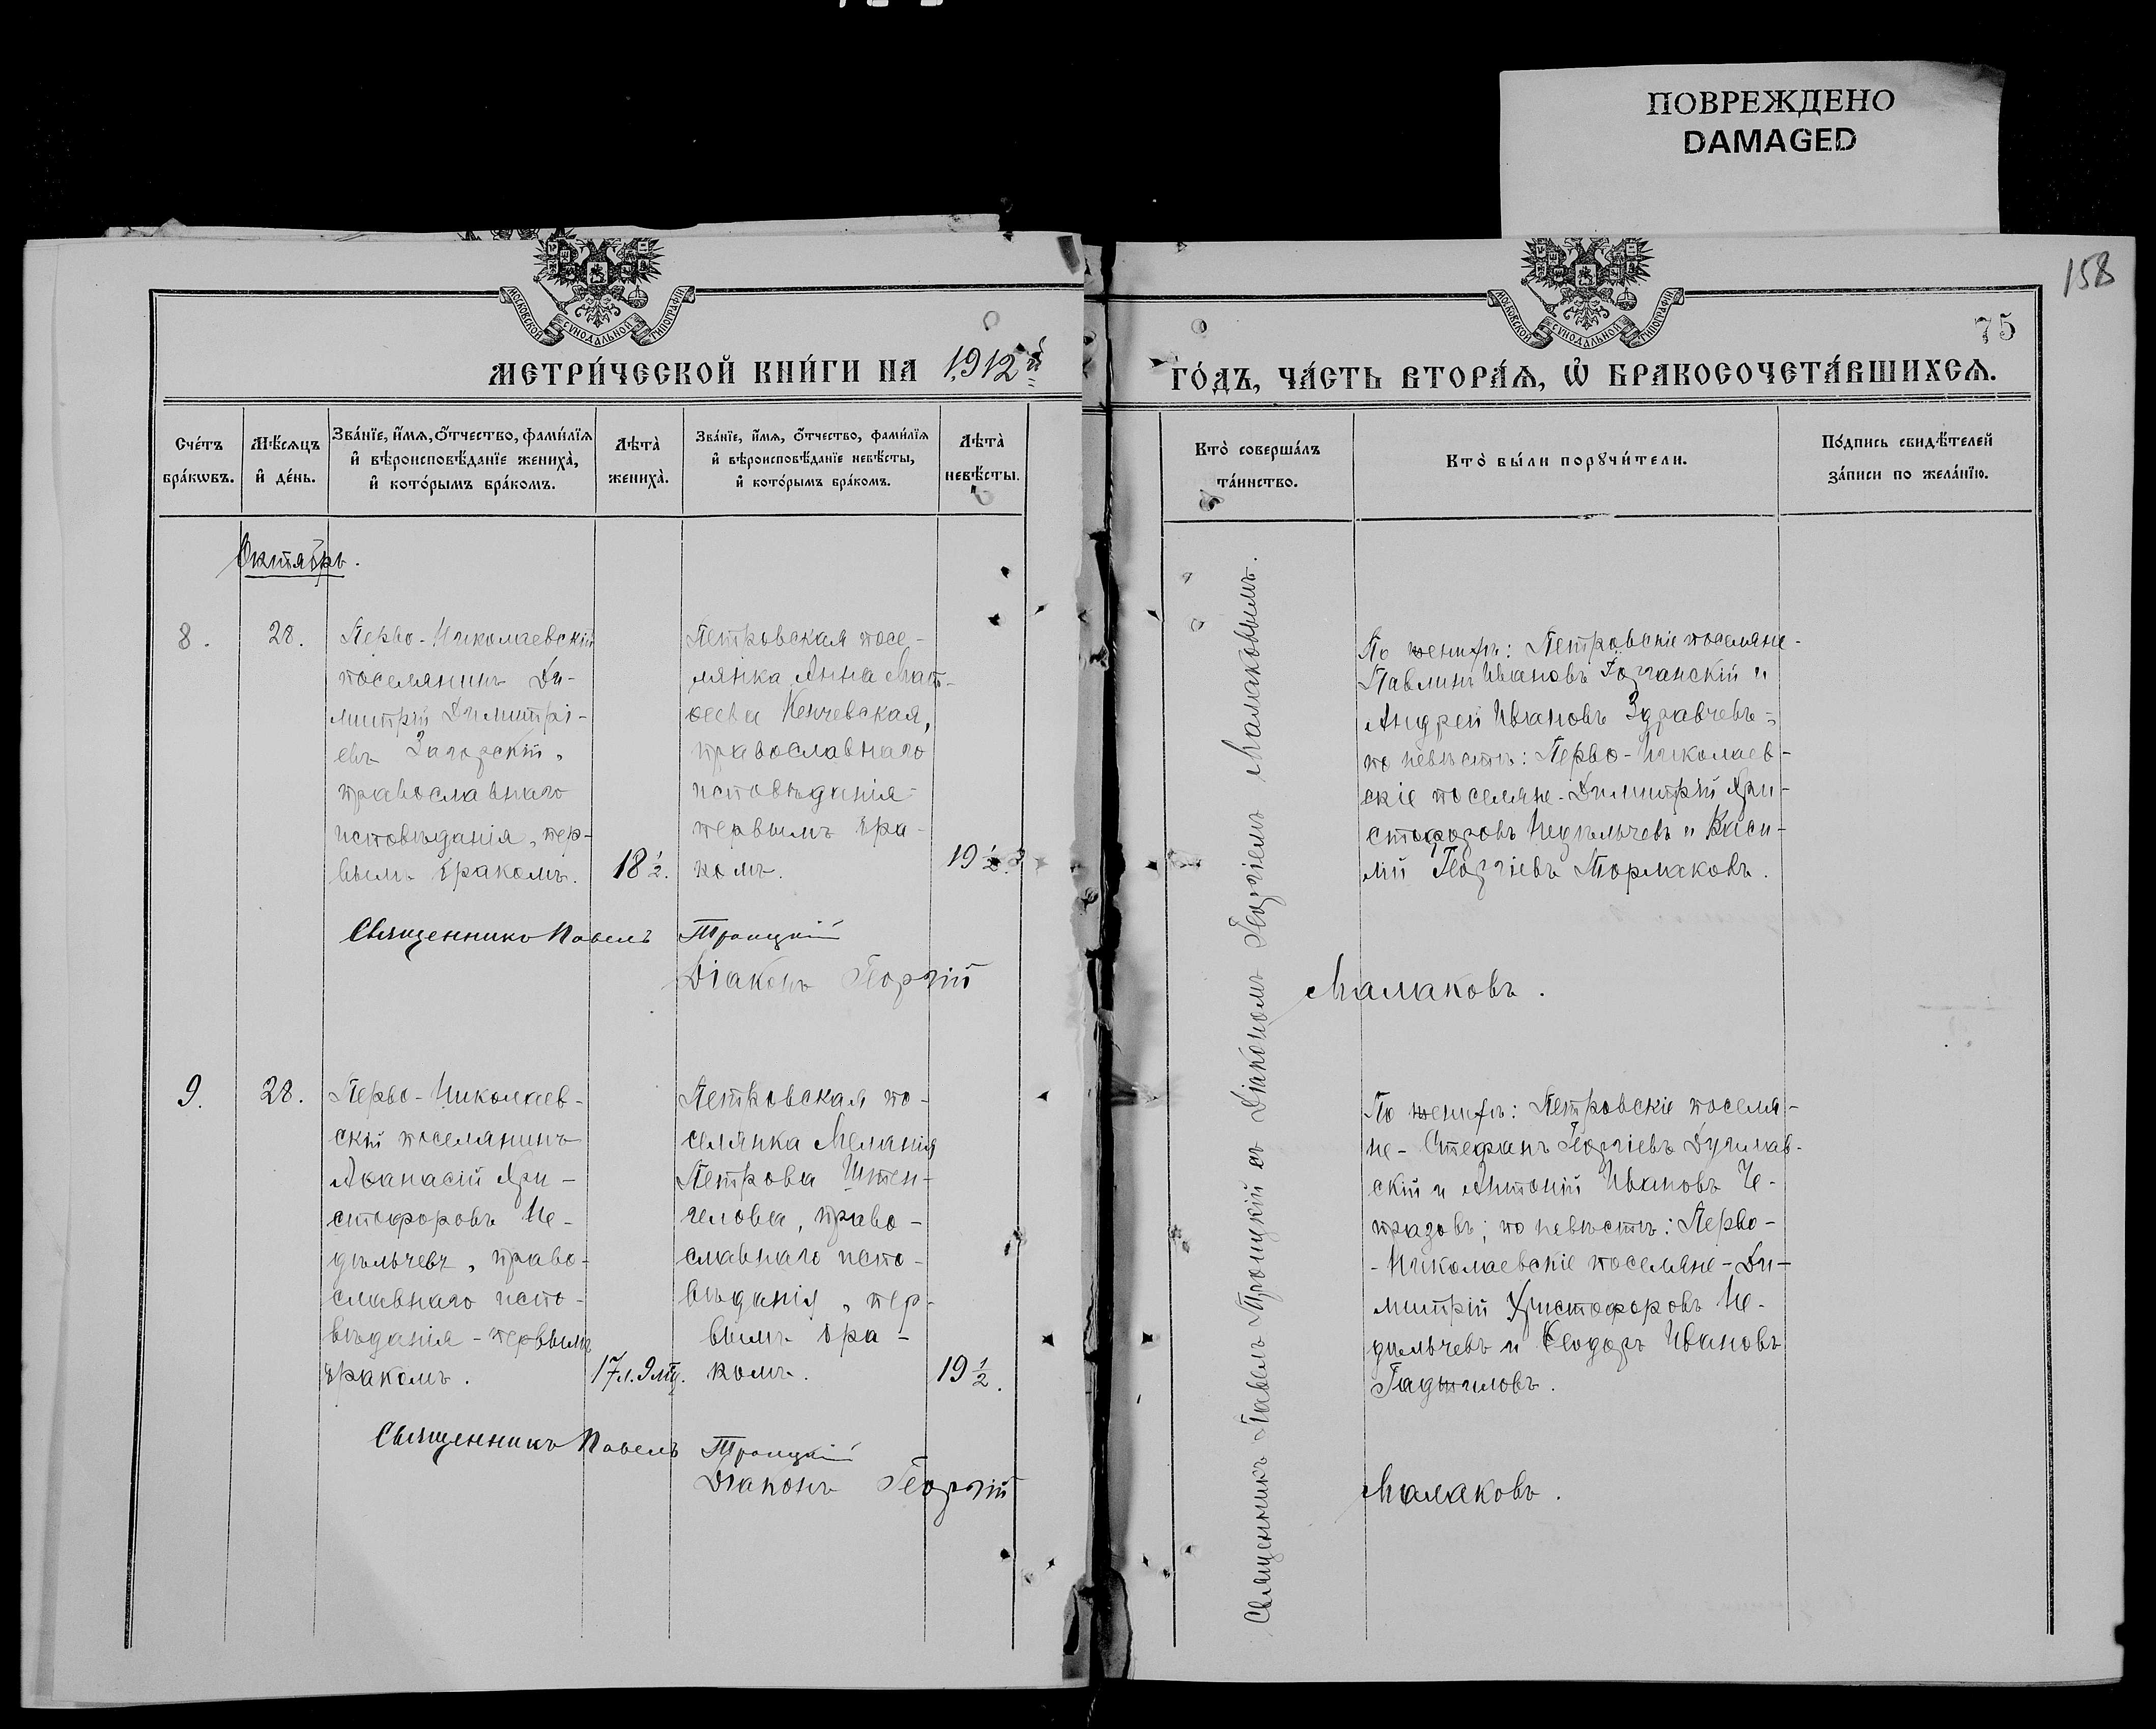 ПОВРЕЖДЕНО
DAMAGED
158
75
МОСКОВСКОЙ СѴНОДАЛЬНОЙ ТИПОГРАФІИ
МОСКОВСКОЙ СѴНОДАЛЬНОЙ ТИПОГРАФІИ
МЕТРИ́ЧЕСКОЙ КНИ́ГИ НА 1912й
ГО́ДЪ, ЧА́СТЬ ВТОРА́Ѧ, Ѡ҆ БРАКОСОЧЕТА́ВШИХСѦ.
Сче́тъ
бра́кѡвъ.
Мѣ́сѧцъ
и҆ де́нь.
Зва́нїе, и҆́мѧ, ѻ҆́тчество, фами́лїѧ
и҆ вѣроисповѣ́данїе жениха̀,
и҆ кото́рымъ бра́комъ.
Лѣта̀
жениха̀.
Зва́нїе, и҆́мѧ, ѻ҆́тчество, фами́лїѧ
и҆ вѣроисповѣ́данїе невѣ́сты,
и҆ кото́рымъ бра́комъ.
Лѣта̀
невѣ́сты.
Кто̀ соверша́лъ
та́инство.
Кто̀ бы́ли порꙋчи́тели.
По́дпись свидѣ́телей
за́писи по жела́нїю.
Октябрь.
8.
28.
Перво-Николаевскій
поселянинъ Ди-
митрій Димитрі-
евъ Загорскій,
православнаго
исповѣданія, пер-
вымъ бракомъ.
18 1/2.
Петровская посе-
лянка Анна Мат-
ѳеева Кенчевская,
православнаго
исповѣданія
первымъ бра-
комъ.
19 1/2.
По женихѣ: Петровскіе поселяне-
Павлинъ Ивановъ и
Андрей Ивановъ Здравчевъ;
по невѣстѣ: Перво-Николаев-
скіе поселяне-Димитрій Хри-
стофоровъ Недѣльчевъ и Васи-
лій Георгіевъ Тормаковъ.
Священникъ Павелъ Троицкій
Діаконъ Георгій Малаковъ.
Священникъ Павелъ Троицкій съ Діакономъ Георгіемъ Малаковымъ.
9.
28.
Перво-Николаев-
скій поселянинъ
Аѳанасій Хри-
стофоровъ Не-
дѣльчевъ, право-
славнаго испо-
вѣданія-первымъ
бракомъ.
17 л. 9 мц.
Петровская по-
селянка Меланія
Петрова Штен-
гелова, право-
славнаго испо-
вѣданія, пер-
вымъ бра-
комъ.
19 1/2.
По женихѣ: Петровскіе поселя-
не- Стефанъ Георгіевъ
скій и Антоній Ивановъ Че-
празовъ; по невѣстѣ: Перво-
-Николаевскіе поселяне-Ди-
митрій Христофоровъ Не-
дѣльчевъ и Ѳеодоръ Ивановъ
Священникъ Павелъ Троицкій
Діаконъ Георгій Малаковъ.